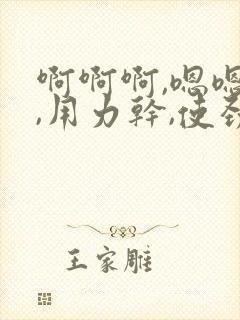 啊啊啊,嗯嗯
,用力幹,使
王家雕